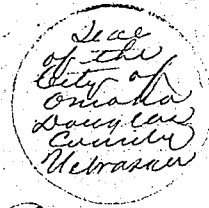 Seal
of the
City of
Omaha
Douglas
County
Nebraska